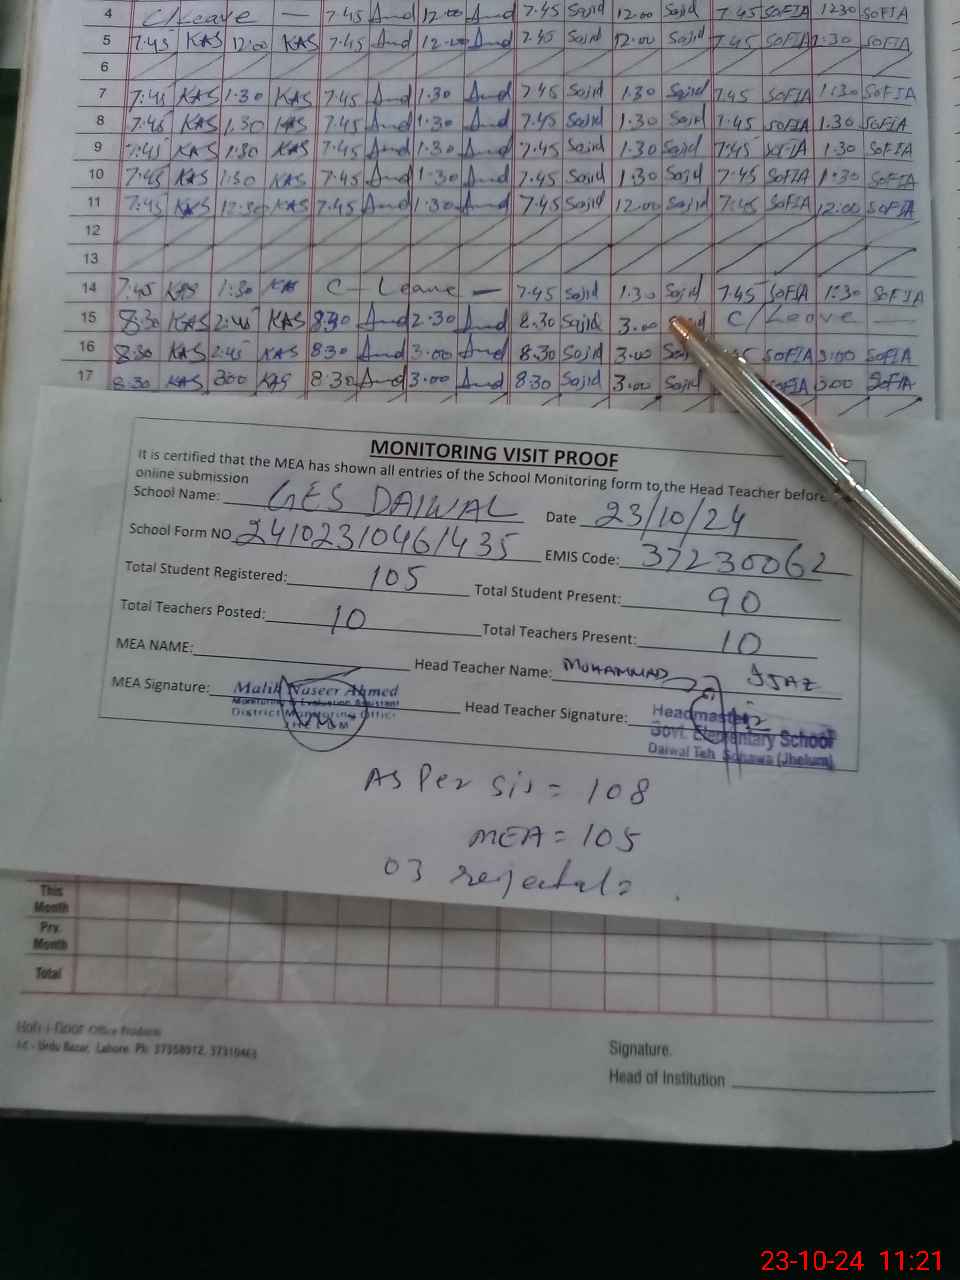 4 C/Leave — 7.45 And 12.00 And 7.45 Sajid 12.00 Sajid 7.45 SOFIA 12.30 SOFIA
5 7:45 KAS 12:00 KAS 7.45 And 12.00 And 7.45 Sajid 12.00 Sajid 7.45 SOFIA 1:30 SOFIA
6
7 7:45 KAS 1.30 KAS 7.45 And 1.30 And 7.45 Sajid 1.30 Sajid 7.45 SOFIA 1:30 SOFIA
8 7:45 KAS 1.30 KAS 7.45 And 1.30 And 7.45 Sajid 1.30 Sajid 7.45 SOFIA 1.30 SOFIA
9 7:45 KAS 1:30 KAS 7.45 And 1.30 And 7.45 Sajid 1.30 Sajid 7:45 SOFIA 1.30 SOFIA
10 7:45 KAS 1:30 KAS 7.45 And 1.30 And 7.45 Sajid 1.30 Sajid 7.45 SOFIA 1.30 SOFIA
11 7:45 KAS 12:30 KAS 7.45 And 1.30 And 7.45 Sajid 12.00 Sajid 7:45 SOFIA 12:00 SOFIA
12
13
14 7:45 KAS 1:30 KAS C - Leave — 7.45 Sajid 1.30 Sajid 7.45 SOFIA 1:30 SOFIA
15 8:30 KAS 2:45 KAS 8.30 And 2.30 And 8.30 Sajid 3.00 C/Leave —
16 8:30 KAS 2:45 KAS 8.30 And 3.00 And 8.30 Sajid 3.00 SOFIA 3:00 SOFIA
17 8:30 KAS 3:00 KAS 8.30 And 3.00 And 8.30 Sajid 3.00 Sajid SOFIA 3:00 SOFIA
MONITORING VISIT PROOF
It is certified that the MEA has shown all entries of the School Monitoring form to the Head Teacher before
online submission
School Name: GES DAIWAL Date 23/10/24
School Form NO 24102310461435 EMIS Code: 37230062
Total Student Registered: 105 Total Student Present: 90
Total Teachers Posted: 10 Total Teachers Present: 10
MEA NAME: Head Teacher Name: MUHAMMAD IJAZ
MEA Signature: Malik Naseer Ahmed Head Teacher Signature: Headmaster
Monitoring & Evaluation Assistant
District Monitoring Officer
Govt. Elementary School
Daiwal Teh Sohawa (Jhelum)
As Per Sis = 108
MEA = 105
03 rejected
This Month
Prv. Month
Total
Office Products
Urdu Bazar, Lahore. Ph: 37358912, 37310468
Signature.
Head of Institution
23-10-24 11:21